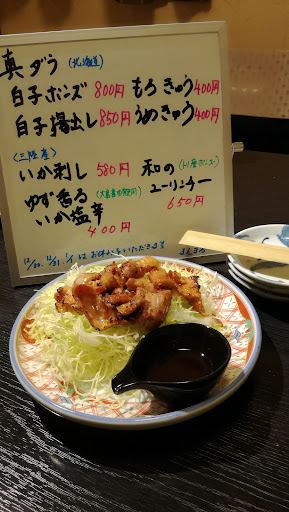 真ダラ (北海道)
白子ポンズ 800円 もろきゅう 400円
白子揚出し 850円 うめきゅう 400円
<三陸産>
いか刺し 580円 和の
ゆず香る ユーリンチー
いか塩辛 650円
400円
12/30, 12/31, 1/1 はお休みをいただきます